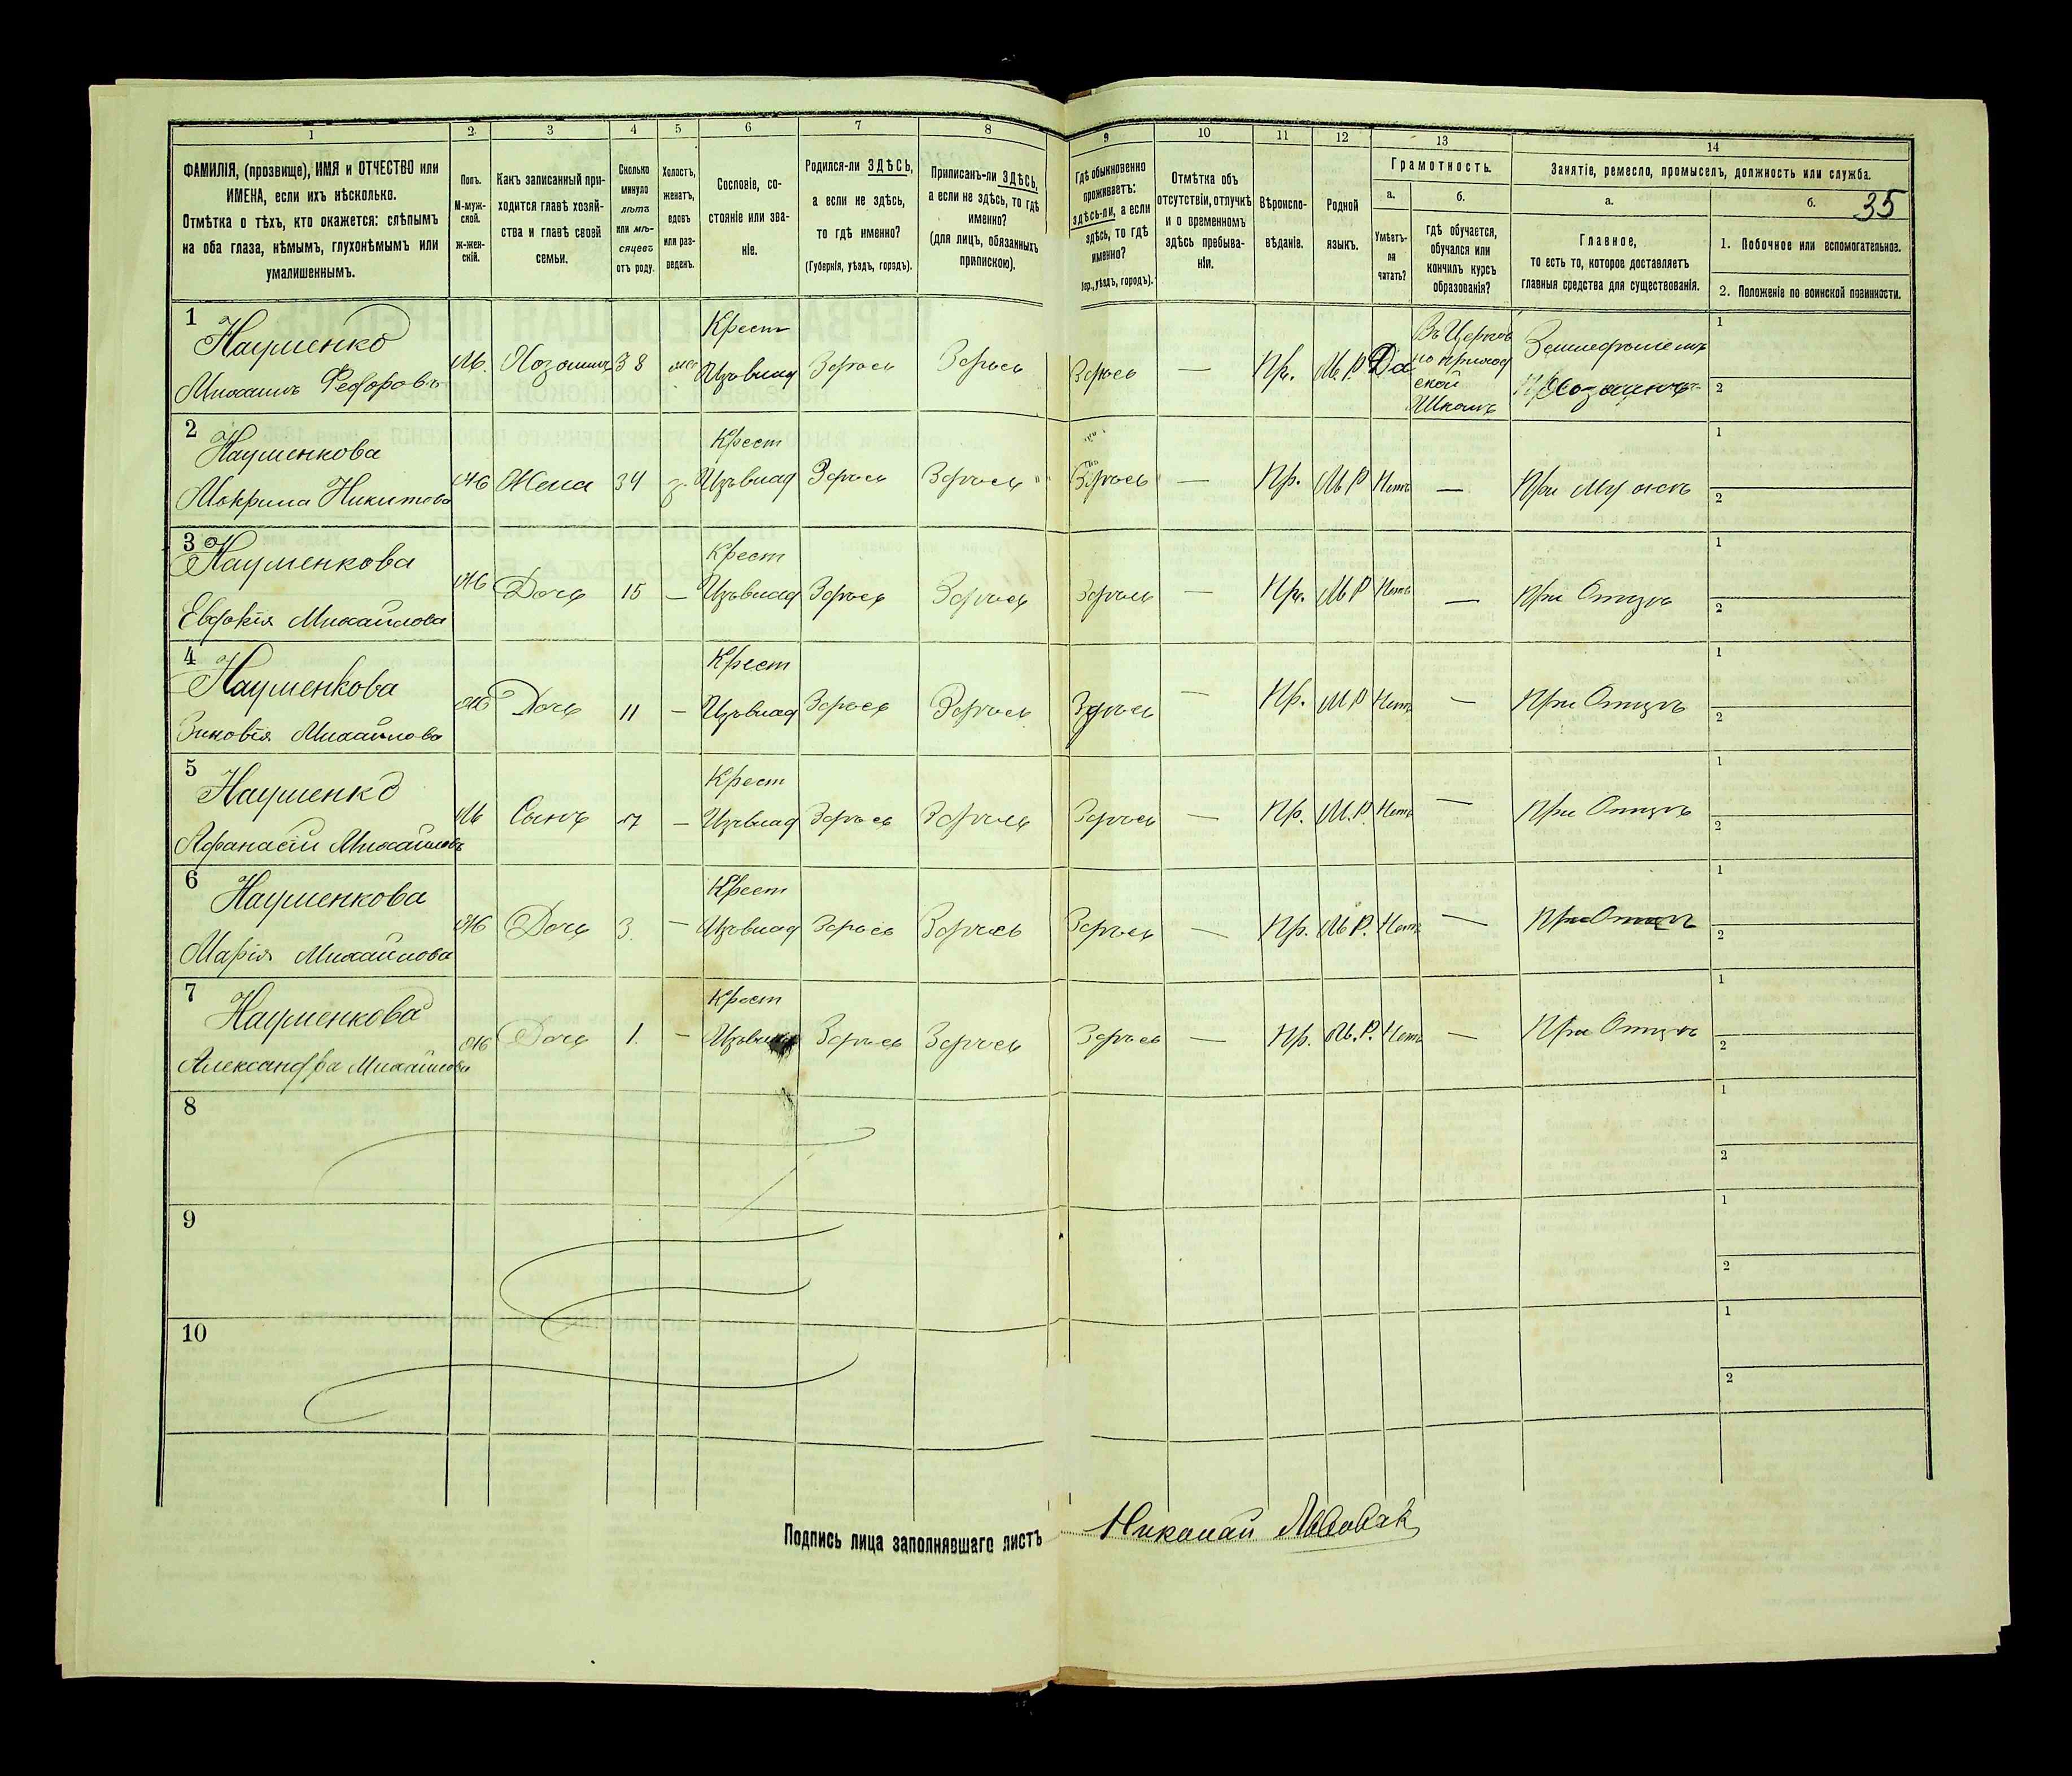 1 2 3 4 5 6 7 8 9 10 11 12 13 14
ФАМИЛІЯ, (прозвище), ИМЯ и ОТЧЕСТВО или
ИМЕНА, если ихъ нѣсколько.
Отмѣтка о тѣхъ, кто окажется: слѣпымъ
на оба глаза, нѣмымъ, глухонѣмымъ или
умалишеннымъ.
Полъ.
М-муж-
ской.
ж-жен-
скій.
Какъ записанный при-
ходится главѣ хозяй-
ства и главѣ своей
семьи.
Сколько
минуло
лѣтъ
или мѣ-
сяцевъ
отъ роду.
Холостъ,
женатъ,
вдовъ
или раз-
веденъ.
Сословіе, со-
стояніе или зва-
ніе.
Родился-ли ЗДѢСЬ,
а если не здѣсь,
то гдѣ именно?
(Губернія, уѣздъ, городъ).
Приписанъ-ли ЗДѢСЬ,
а если не здѣсь, то гдѣ
именно?
(для лицъ, обязанныхъ
припискою).
Гдѣ обыкновенно
проживаетъ:
здѣсь-ли, а если
здѣсь, то гдѣ
именно?
уѣздъ, городъ).
Отмѣтка объ
отсутствіи, отлучкѣ
и о временномъ
здѣсь пребыва-
ніи.
Вѣроиспо-
вѣданіе.
Родной
языкъ.
Грамотность.
а.
Умѣетъ-
ли
читать?
б.
гдѣ обучается,
обучался или
кончилъ курсъ
образованія?
Занятіе, ремесло, промыселъ, должность или служба.
а.
Главное,
то есть то, которое доставляетъ
главныя средства для существованія.
б. 35
1. Побочное или вспомогательное.
2. Положеніе по воинской повинности.
1 Науменко Крест Въ Церков Земледѣлiемъ 1
Михаилъ Федоровъ М. Хозяинъ 38 Здѣсь Здѣсь Здѣсь — Пр. М.Р. Да но приход
ской Хозяинъ 2
Школѣ
2 Науменкова Крест 1
Мокрина Никитова Ж Жена 34 з. Здѣсь Здѣсь Здѣсь — Пр. М Р Нетъ — При мужѣ 2
3 Науменкова Крест 1
Евдокія Михайлова Ж Дочь 15 — Здѣсь Здѣсь Здѣсь — Пр. М Р Нетъ — При Отцѣ 2
4 Науменкова Крест 1
Зиновія Михайлова Ж Дочь 11 — Здѣсь Здѣсь Здѣсь — Пр. М Р Нетъ — При Отцѣ 2
5 Науменко Крест 1
Афанасій Михайловъ М Сынъ — Здѣсь Здѣсь Здѣсь — Пр. М.Р. Нетъ — При Отцѣ 2
6 Науменкова Крест 1
Марія Михайлова Ж Дочь 3. — Здѣсь Здѣсь Здѣсь — Пр. М Р. Нетъ — При Отцѣ 2
7 Науменкова Крест 1
Александра Михайлова Ж Дочь 1. — Здѣсь Здѣсь Здѣсь — Пр. М.Р. Нетъ — При Отцѣ 2
8 1
2
9 1
2
10 1
2
Подпись лица заполнявшаго листъ Николай